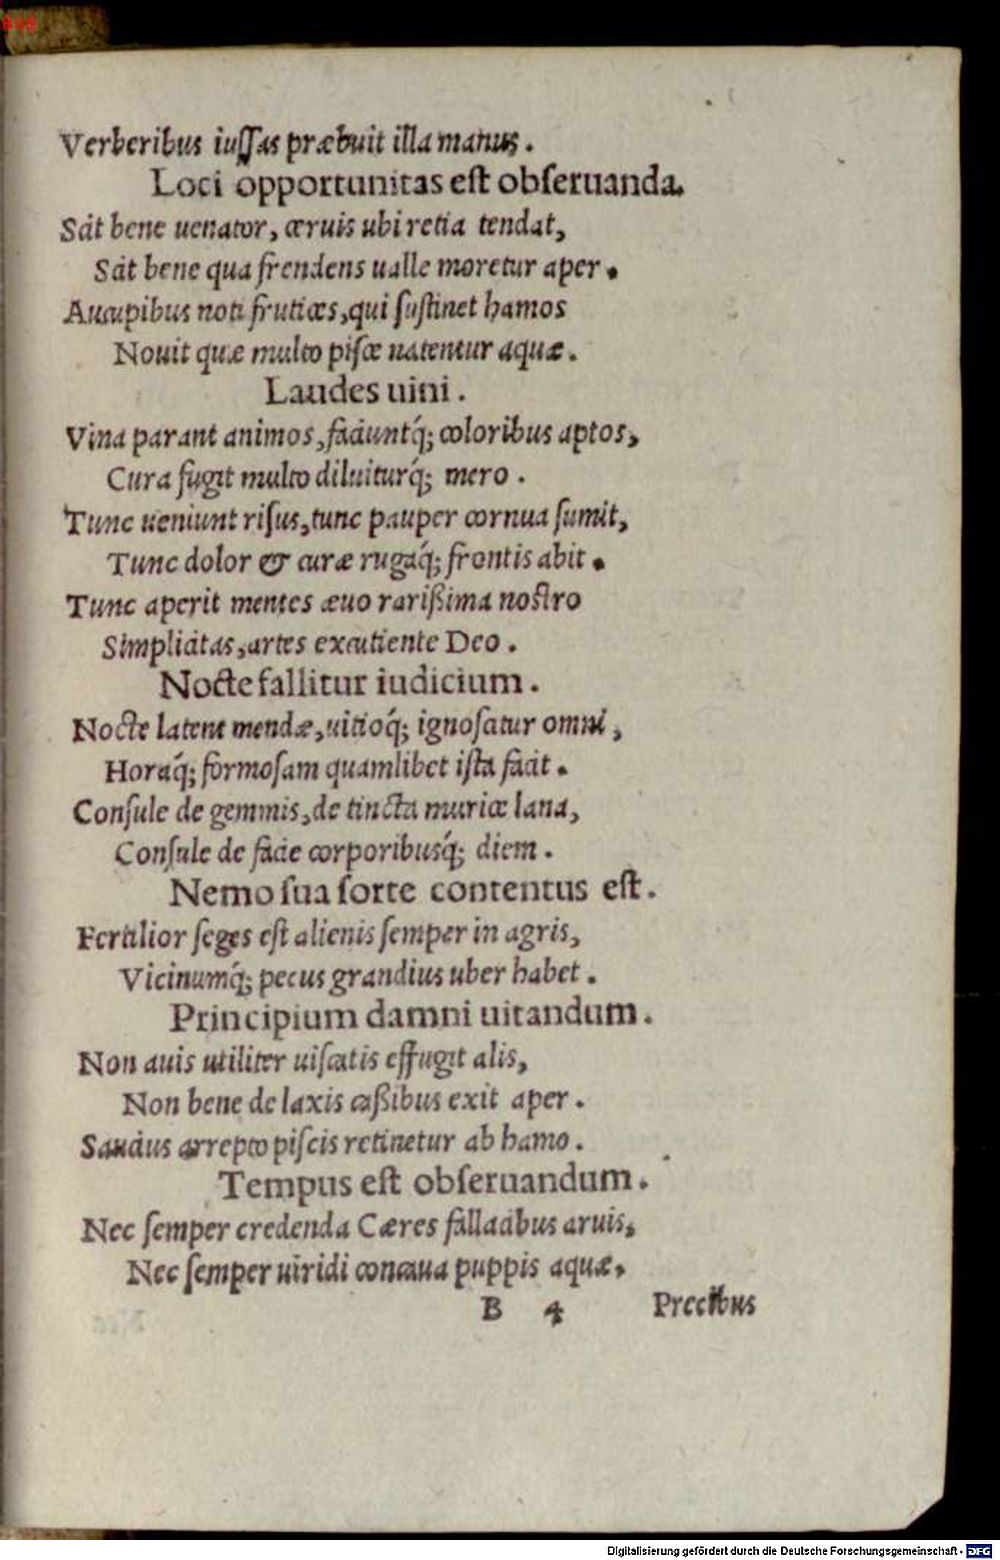 Verberibus iuſſas præbuit illa manus.
Loci opportunitas eſt obſeruanda.
Scit bene uenator, ceruis ubi retia tendat,
Scit bene qua frendens ualle moretur aper.
Aucupibus noti frutices, qui ſuſtinet hamos
Nouit quæ multo piſce natentur aquæ.
Laudes uini.
Vina parant animos, faciuntq́; coloribus aptos,
Cura fugit multo diluiturq́; mero.
Tunc ueniunt riſus, tunc pauper cornua ſumit,
Tunc dolor & curæ rugaq́; frontis abit.
Tunc aperit mentes æuo rarißima noſtro
Simplicitas, artes excutiente Deo.
Nocte fallitur iudicium.
Nocte latent mendæ, uitioq́; ignoſcatur omni,
Horaq́; formoſam quamlibet iſta facit.
Conſule de gemmis, de tincta murice lana,
Conſule de facie corporibusq́; diem.
Nemo ſua ſorte contentus eſt.
Fertilior ſeges eſt alienis ſemper in agris,
Vicinumq́; pecus grandius uber habet.
Principium damni uitandum.
Non auis utiliter uiſcatis effugit alis,
Non bene de laxis caßibus exit aper.
Saucius arrepto piſcis retinetur ab hamo.
Tempus eſt obſeruandum.
Nec ſemper credenda Cæres fallacibus aruis,
Nec ſemper uiridi concaua puppis aquæ,
B 4 Precibus
Digitalisierung gefördert durch die Deutsche Forschungsgemeinschaft - DFG